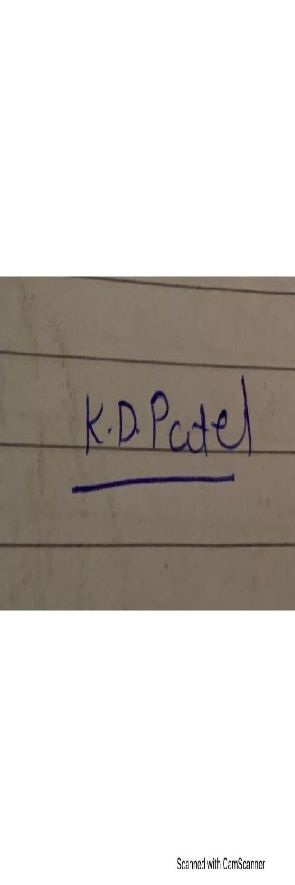 K.D.Patel
Scanned with CamScanner